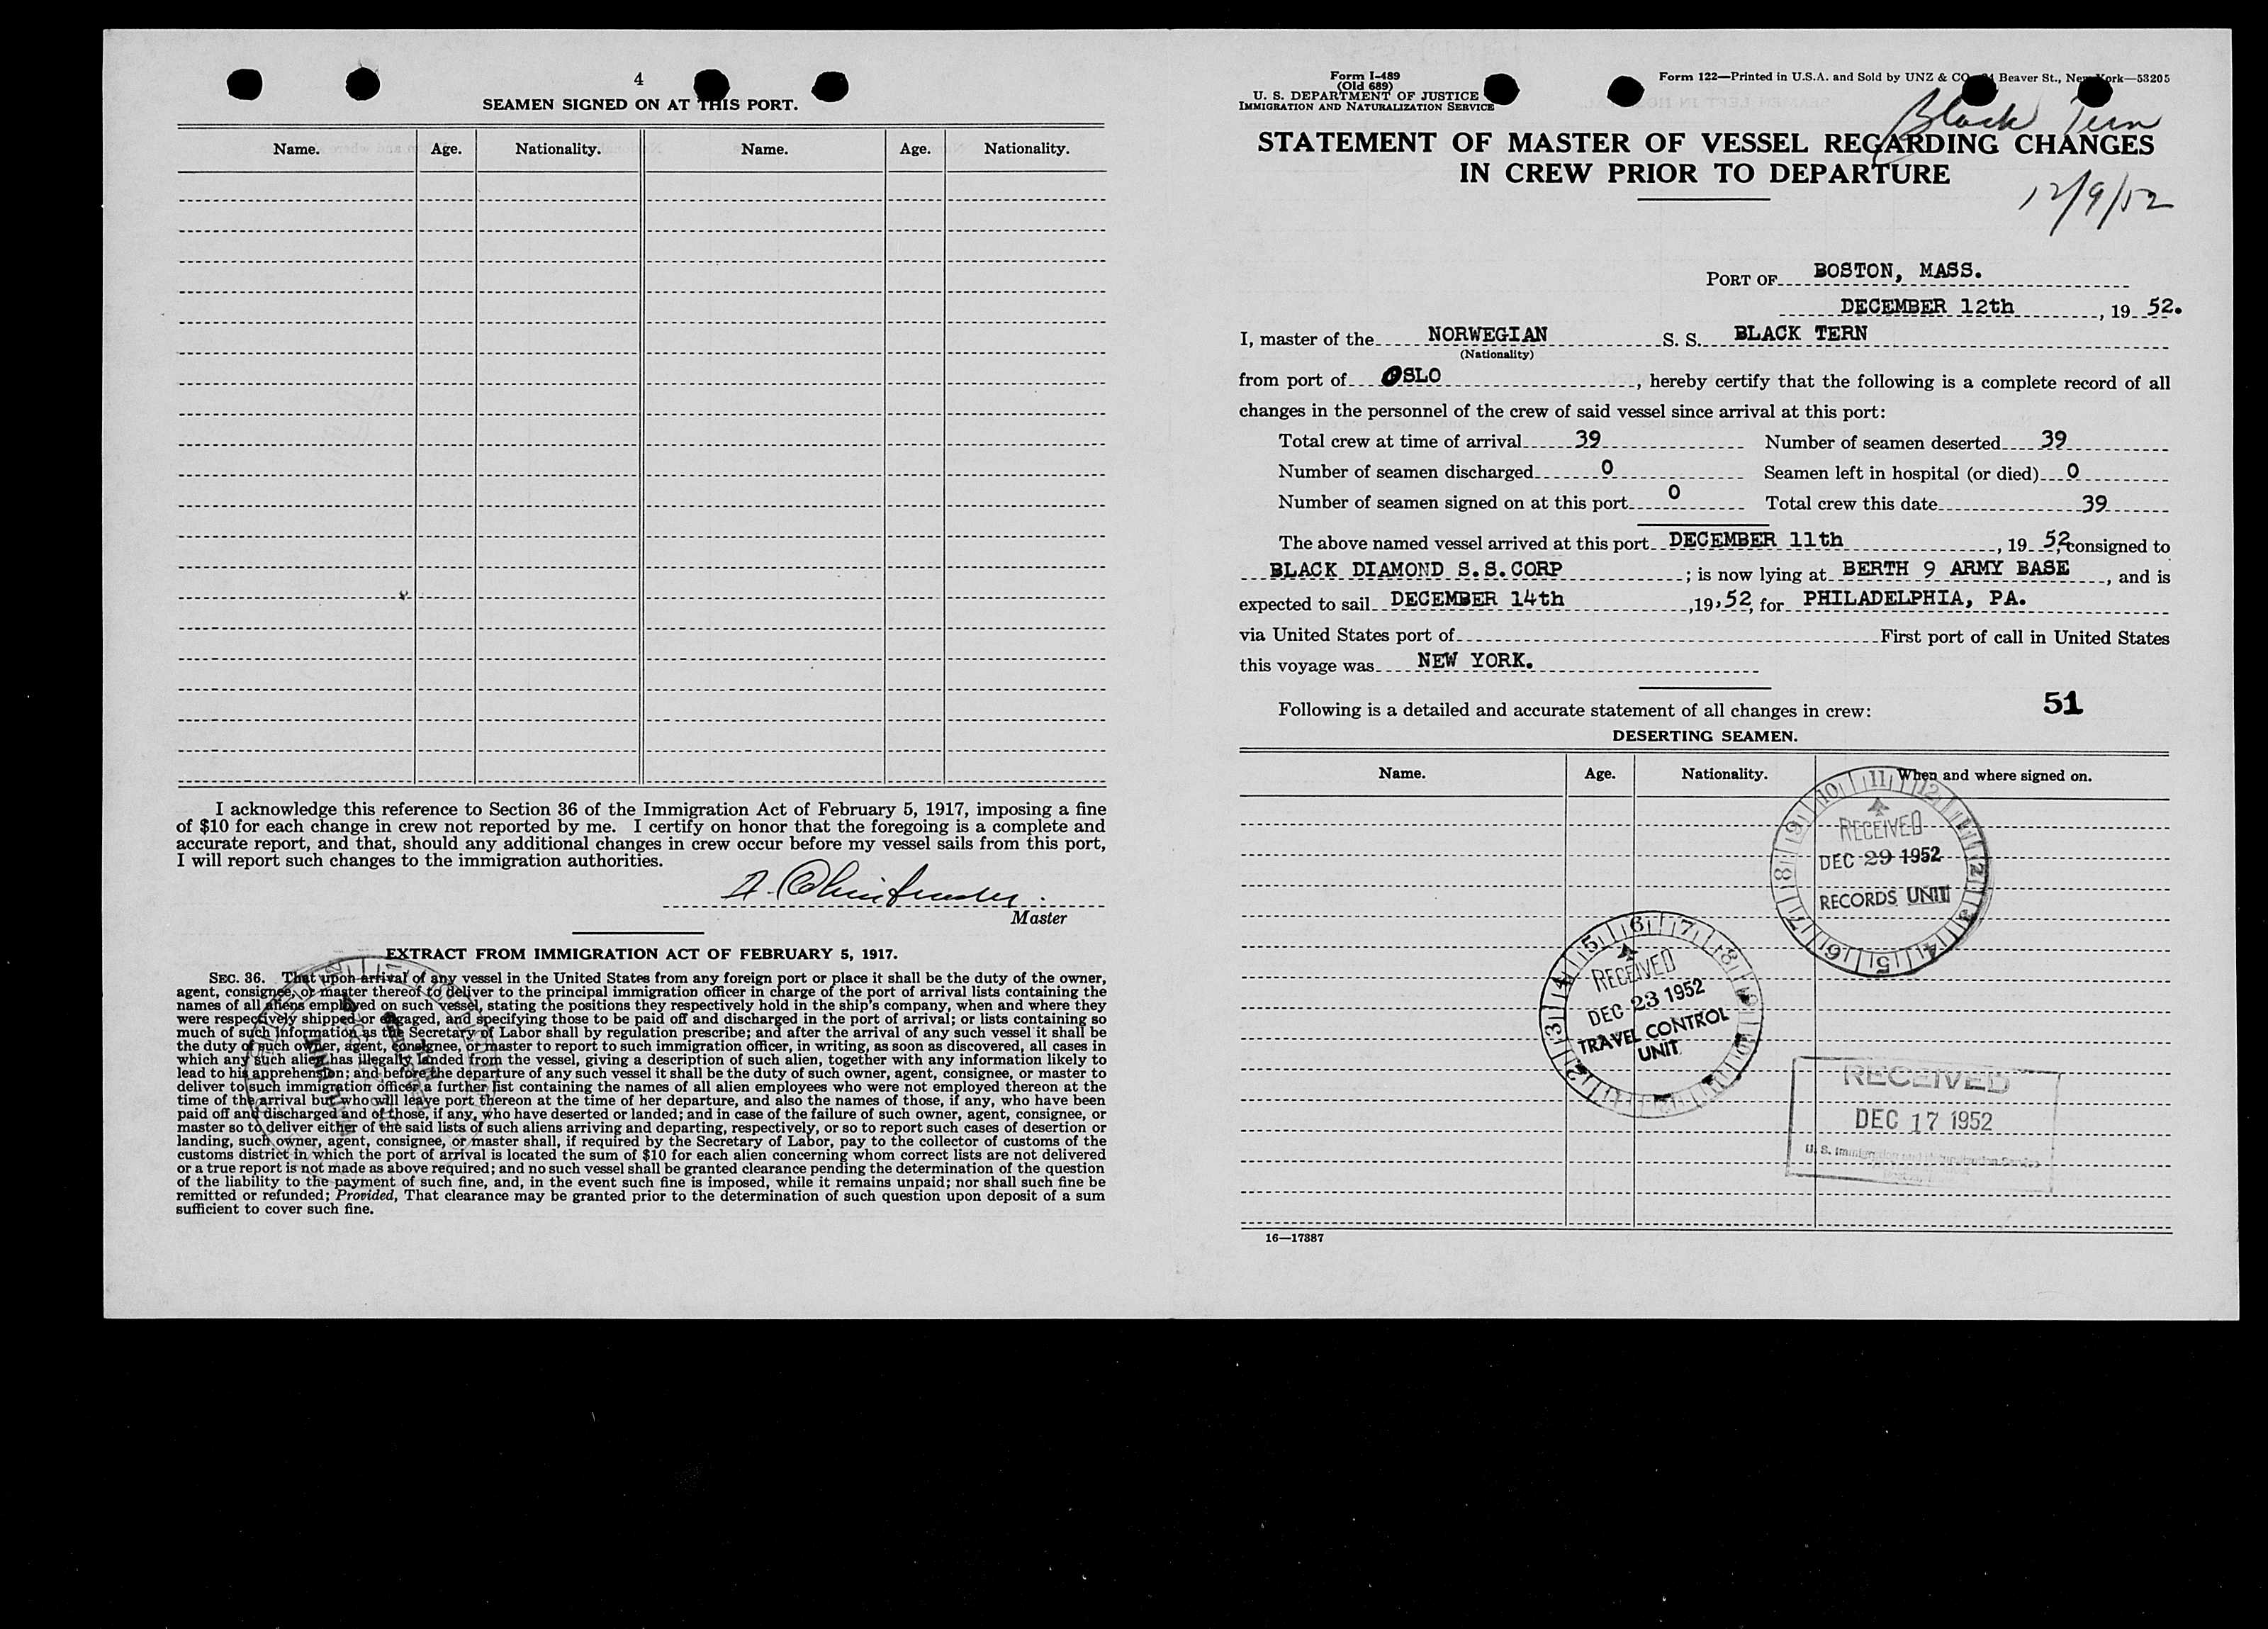 4
SEAMEN SIGNED ON AT THIS PORT.
Name. Age. Nationality. Name. Age. Nationality.
I acknowledge this reference to Section 36 of the Immigration Act of February 5, 1917, imposing a fine
of $10 for each change in crew not reported by me. I certify on honor that the foregoing is a complete and
accurate report, and that, should any additional changes in crew occur before my vessel sails from this port,
I will report such changes to the immigration authorities.
Master
EXTRACT FROM IMMIGRATION ACT OF FEBRUARY 5, 1917.
SEC. 36. That upon arrival of any vessel in the United States from any foreign port or place it shall be the duty of the owner,
agent, consignee, or master thereof to deliver to the principal immigration officer in charge of the port of arrival lists containing the
names of all aliens employed on such vessel, stating the positions they respectively hold in the ship's company, when and where they
were respectively shipped or engaged, and specifying those to be paid off and discharged in the port of arrival; or lists containing so
much of such information as the Secretary of Labor shall by regulation prescribe; and after the arrival of any such vessel it shall be
the duty of such owner, agent, consignee, or master to report to such immigration officer, in writing, as soon as discovered, all cases in
which any such alien has illegally landed from the vessel, giving a description of such alien, together with any information likely to
lead to his apprehension; and before the departure of any such vessel it shall be the duty of such owner, agent, consignee, or master to
deliver to such immigration officer a further list containing the names of all alien employees who were not employed thereon at the
time of the arrival but who will leave port thereon at the time of her departure, and also the names of those, if any, who have been
paid off and discharged and of those, if any, who have deserted or landed; and in case of the failure of such owner, agent, consignee, or
master so to deliver either of the said lists of such aliens arriving and departing, respectively, or so to report such cases of desertion or
landing, such owner, agent, consignee, or master shall, if required by the Secretary of Labor, pay to the collector of customs of the
customs district in which the port of arrival is located the sum of $10 for each alien concerning whom correct lists are not delivered
or a true report is not made as above required; and no such vessel shall be granted clearance pending the determination of the question
of the liability to the payment of such fine, and, in the event such fine is imposed, while it remains unpaid; nor shall such fine be
remitted or refunded; Provided, That clearance may be granted prior to the determination of such question upon deposit of a sum
sufficient to cover such fine.
Form I-489
(Old 689)
U. S. DEPARTMENT OF JUSTICE
IMMIGRATION AND NATURALIZATION SERVICE
Form 122—Printed in U.S.A. and Sold by UNZ & CO Beaver St., New York—53205
Black Tern
STATEMENT OF MASTER OF VESSEL REGARDING CHANGES
IN CREW PRIOR TO DEPARTURE
12/9/52
PORT OF BOSTON, MASS.
DECEMBER 12th, 19 52.
I, master of the NORWEGIAN S. S. BLACK TERN
(Nationality)
from port of OSLO, hereby certify that the following is a complete record of all
changes in the personnel of the crew of said vessel since arrival at this port:
Total crew at time of arrival 39 Number of seamen deserted 39
Number of seamen discharged 0 Seamen left in hospital (or died) 0
Number of seamen signed on at this port 0 Total crew this date 39
The above named vessel arrived at this port DECEMBER 11th, 19 52, consigned to
BLACK DIAMOND S.S.CORP; is now lying at BERTH 9 ARMY BASE, and is
expected to sail DECEMBER 14th, 19 52, for PHILADELPHIA, PA.
via United States port of First port of call in United States
this voyage was NEW YORK.
51
Following is a detailed and accurate statement of all changes in crew:
DESERTING SEAMEN.
Name. Age. Nationality. When and where signed on.
RECEIVED
DEC 29 1952
RECORDS UNIT
RECEIVED
DEC 23 1952
TRAVEL CONTROL
UNIT
RECEIVED
DEC 17 1952
16—17887